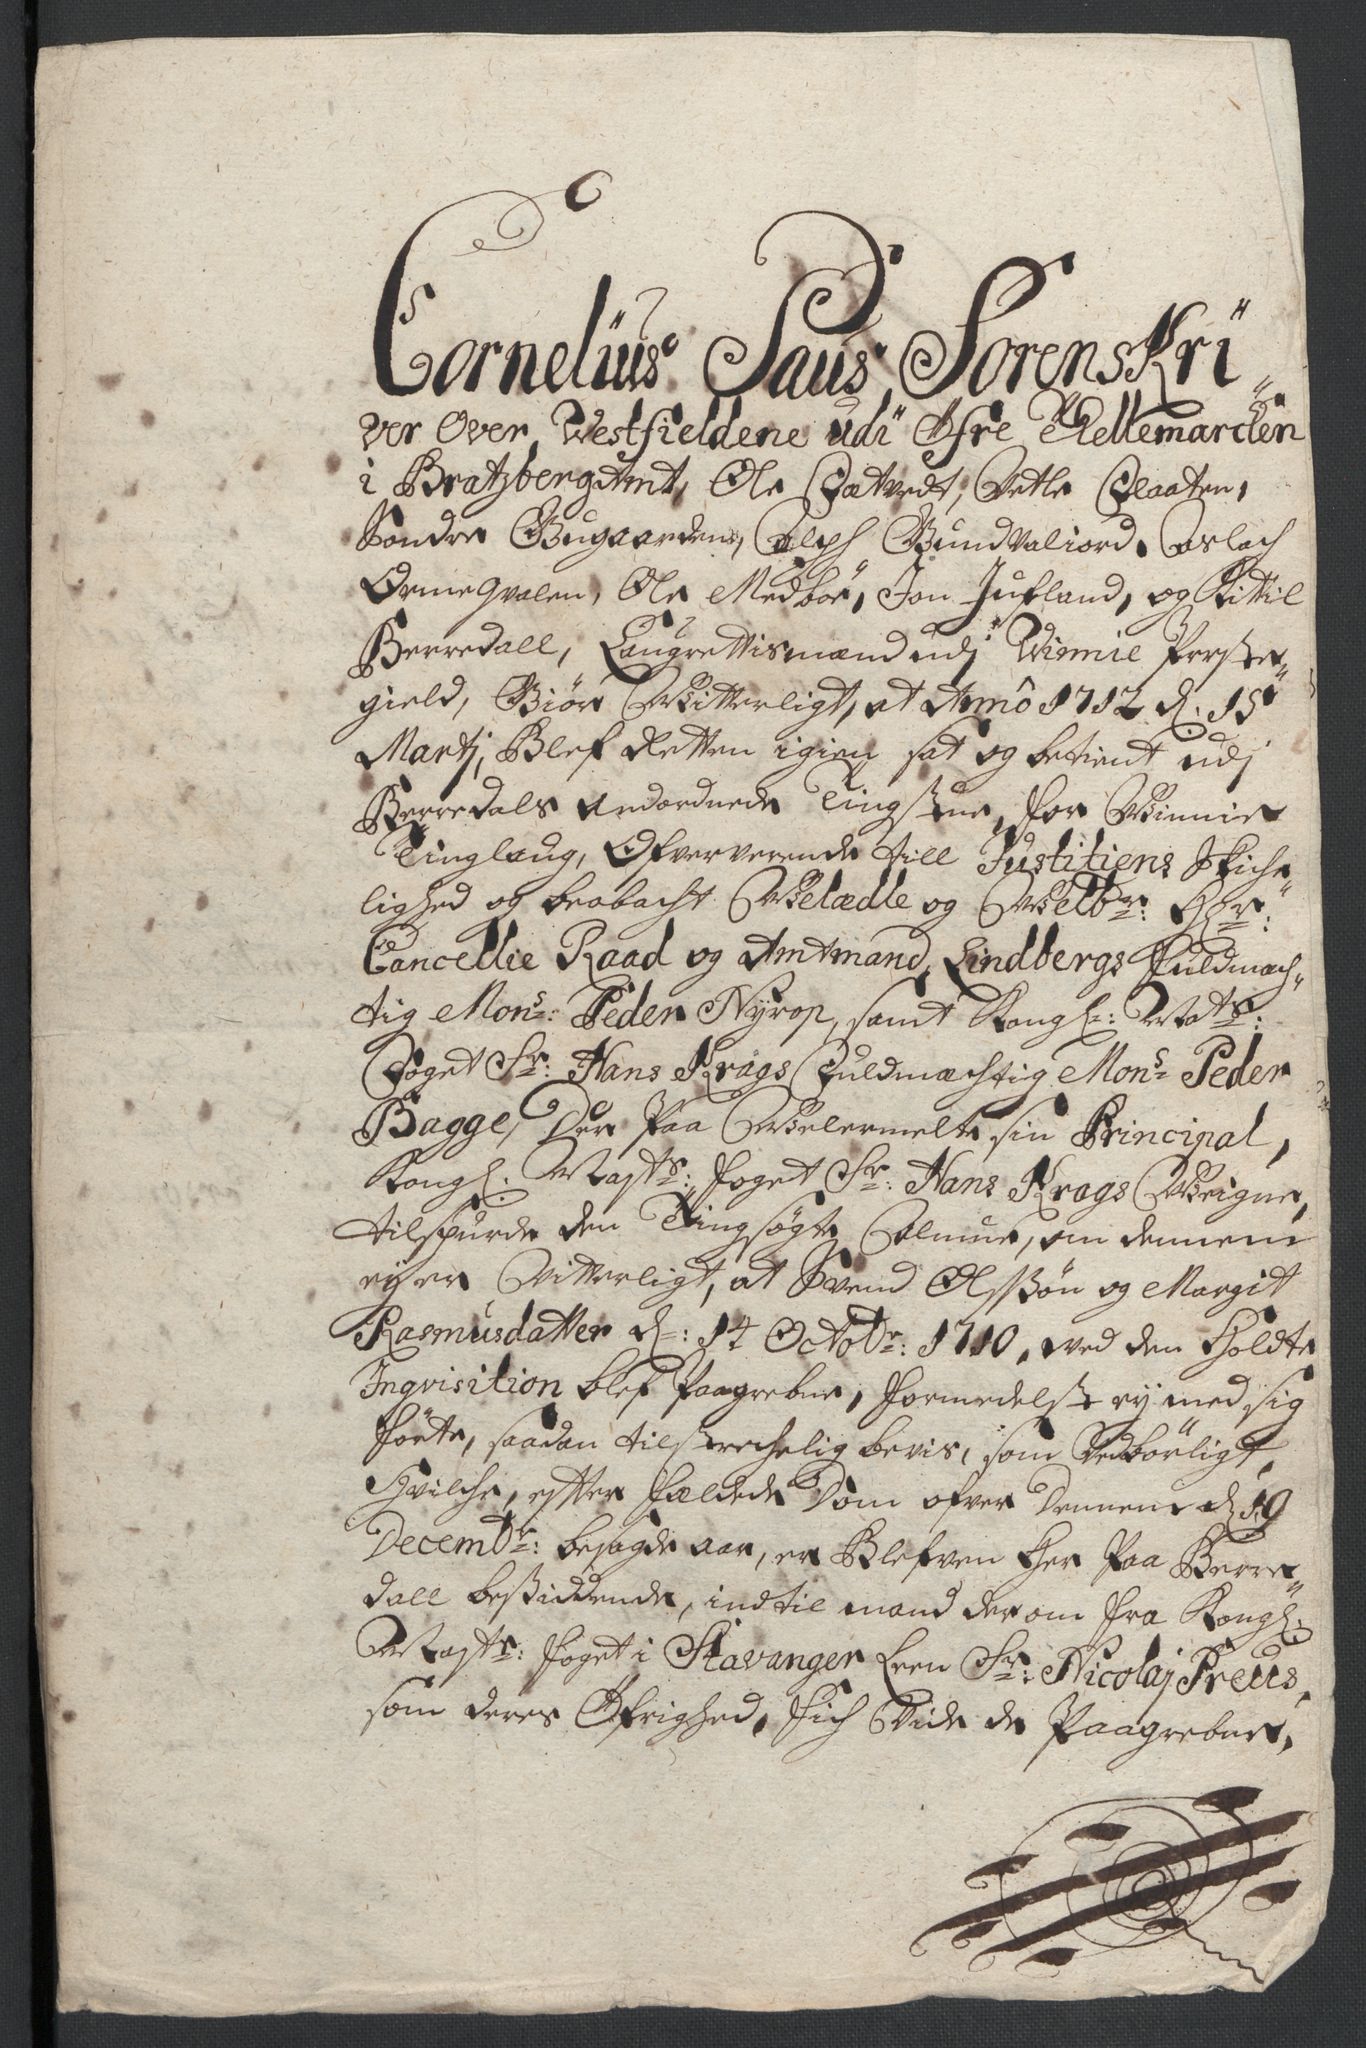 Cornelius Paus, Sorenskri"
ver Over, Westfieldene udi Øfre Tellemarcken
i Bratzberg Amt, Ole Fatvedt, Vetle Flaaten,
Sondre Bugaarden, Alph Gundvaliord, Aslach
Ormegvalen, Ole Medböe, Jon Jufland, og Kittil
Berredall, Laugrettismænd udj Winnie Præste"
gield, Giör Vitterligt, at Anno 1712 d. 15
Martj, Blef Retten igien sat og betient udj
Berredals anordnede Tingstue, for Winnie
Tinglaug, Ofververende till Justitiens Skiche"
lighed og beobacht Velædle og Velbr: Hr:
Cancellie Raad og Amtmand, Lindbergs Fuldmæch"
tig Mons: Peder Nyrop, samt Kongl: Mats:
Foget Sr: Hans Krags Fuldmæchtig Mons: Peder
Bagge, Der Paa Velermelte sin Principal,
Kongl. Mayts: foget Sr: Hans Krags Veigne,
tilspurde den Tingsøgte Almue, om dennem
ey er Vitterligt, at Svend Olssøn og Margit
Rasmusdatter d: 14 Octobr: 1710, ved den holdte
Inqvisition blef Paagrebne, formedelst ey med sig
förte, saadan tilstrechelig bevis, som Vedbörligt,
Hvilche, efter fældede Dom ofver Dennem d 19
Decembr: besagde aar, er Blefven her Paa Berre"
dall besiddende, indtil mand derom fra Kongl:
Mayts: foget i Stavanger Leen Sr: Nicolaj Preus,
som deres Øfrighed, fich Vide de Paagrebnes,